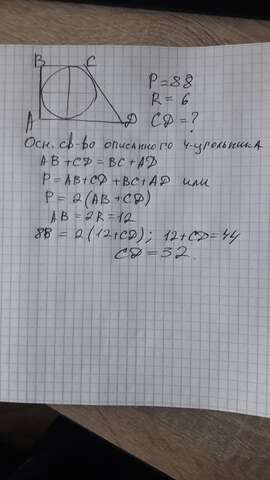 B C
A D
P = 88
R = 6
CD = ?
Осн. св-во описанного 4-угольника
AB + CD = BC + AD
P = AB + CD + BC + AD или
P = 2(AB + CD)
AB = 2R = 12
88 = 2(12 + CD); 12 + CD = 44
CD = 32.